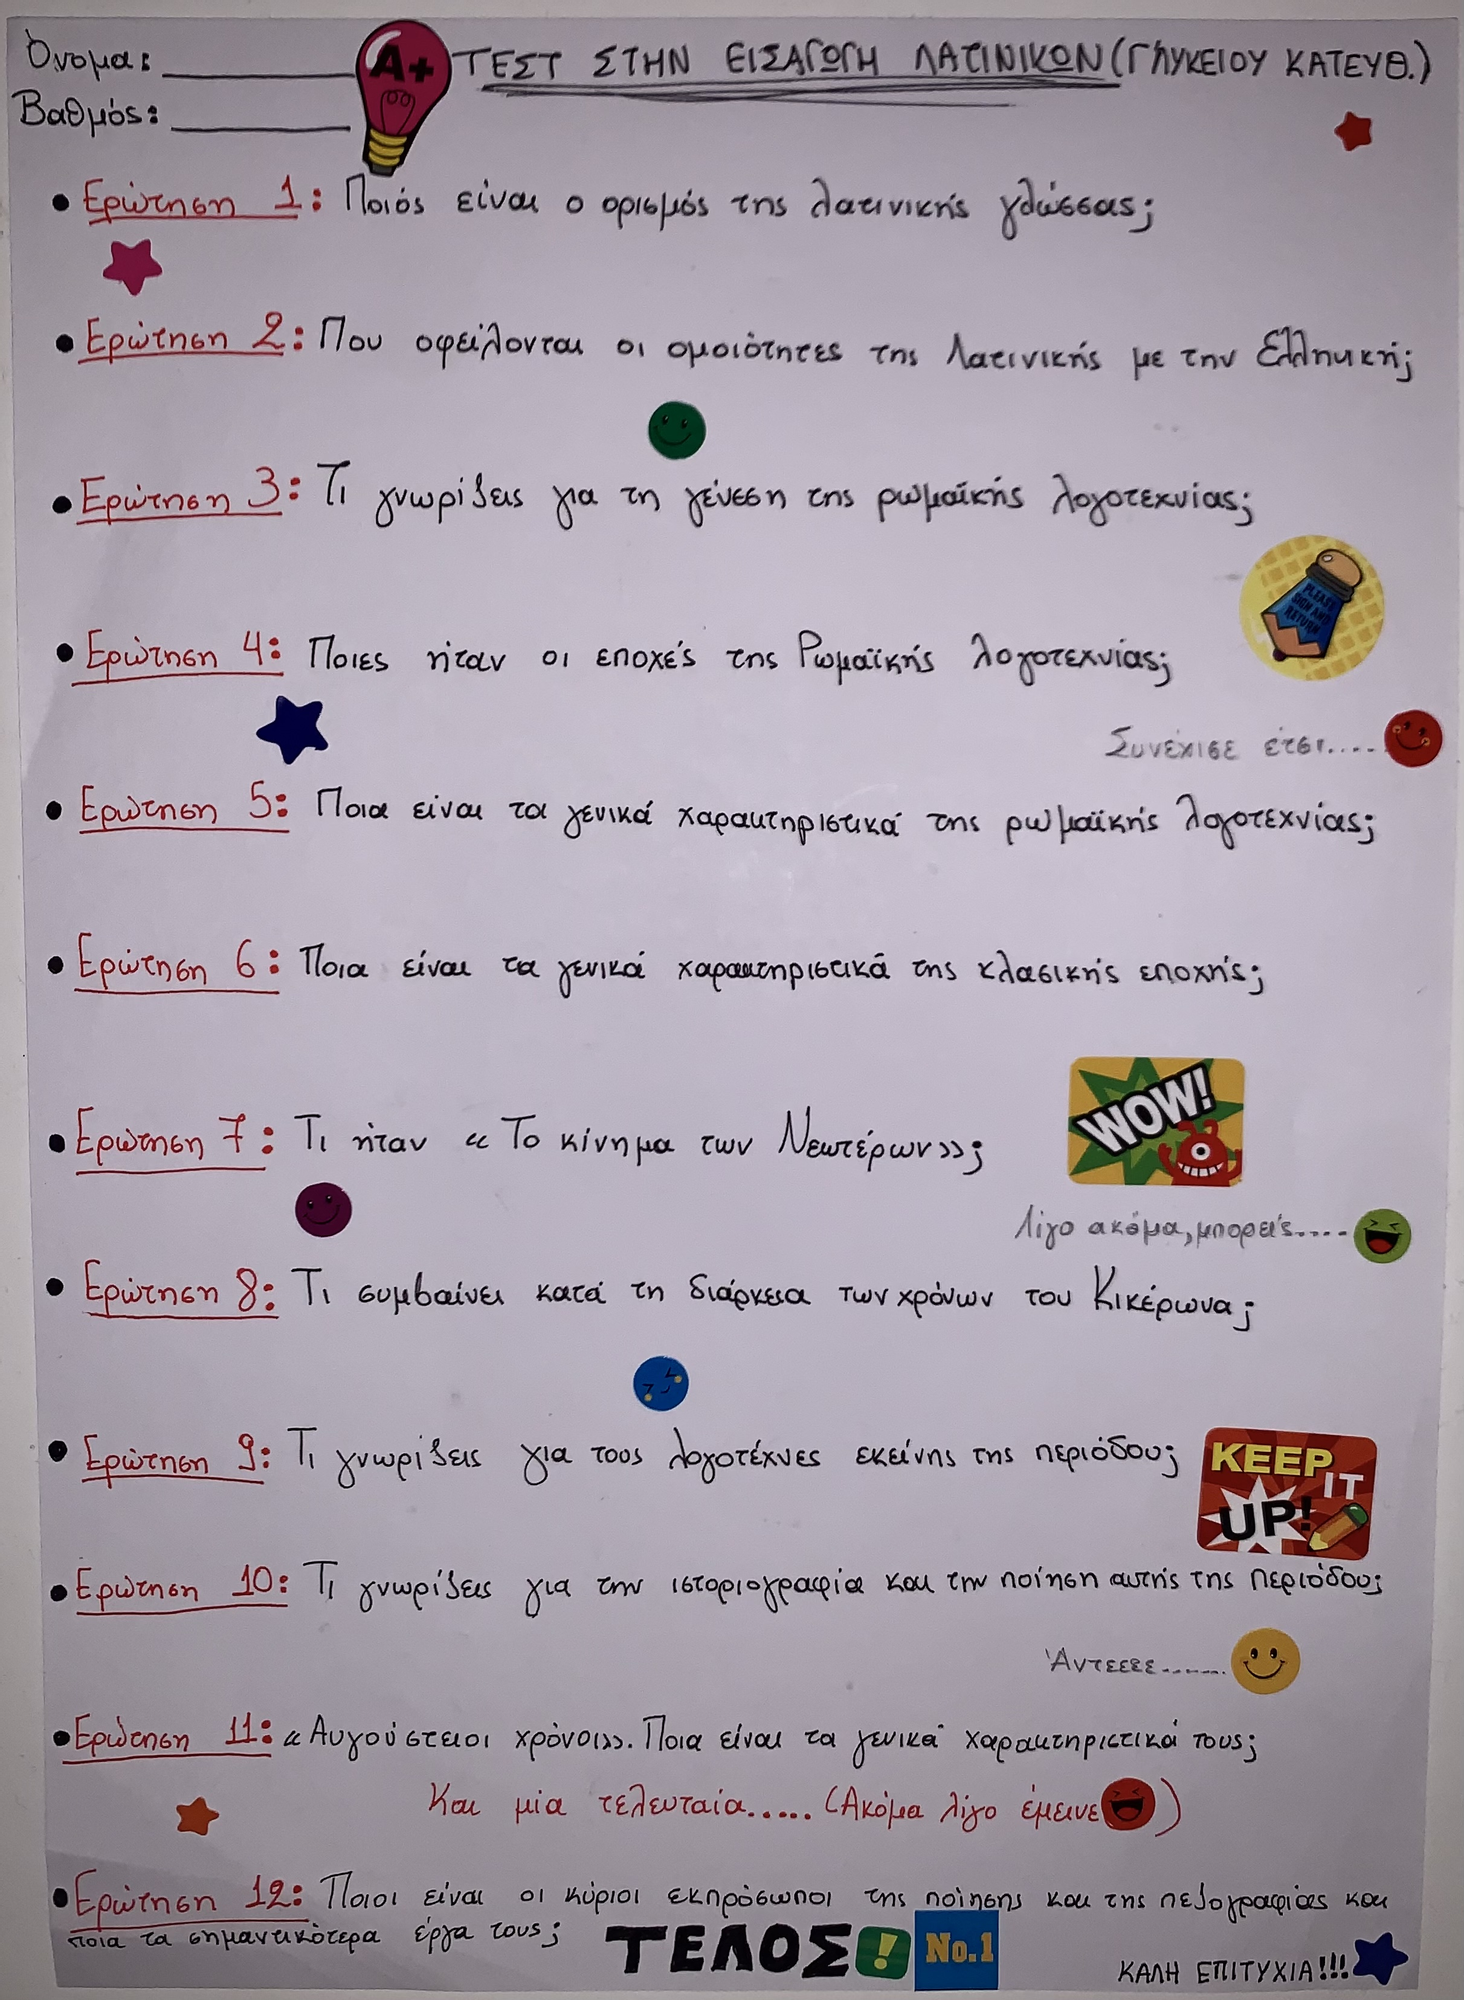 Όνομα: ________
Βαθμός: ________
A+
ΤΕΣΤ ΣΤΗΝ ΕΙΣΑΓΩΓΗ ΛΑΤΙΝΙΚΩΝ (Γ' ΛΥΚΕΙΟΥ ΚΑΤΕΥΘ.)
• Ερώτηση 1: Ποιός είναι ο ορισμός της λατινικής γλώσσας;
• Ερώτηση 2: Που οφείλονται οι ομοιότητες της Λατινικής με την Ελληνική;
• Ερώτηση 3: Τι γνωρίζεις για τη γένεση της ρωμαϊκής λογοτεχνίας;
PLEASE SIGN AND RETURN
• Ερώτηση 4: Ποιες ήταν οι εποχές της Ρωμαϊκής λογοτεχνίας;
Συνέχισε έτσι.....
• Ερώτηση 5: Ποια είναι τα γενικά χαρακτηριστικά της ρωμαϊκής λογοτεχνίας;
• Ερώτηση 6: Ποια είναι τα γενικά χαρακτηριστικά της κλασικής εποχής;
WOW!
• Ερώτηση 7: Τι ήταν «Το κίνημα των Νεωτέρων»;
Λίγο ακόμα, μπορείς.....
• Ερώτηση 8: Τι συμβαίνει κατά τη διάρκεια των χρόνων του Κικέρωνα;
• Ερώτηση 9: Τι γνωρίζεις για τους λογοτέχνες εκείνης της περιόδου;
KEEP IT UP!
• Ερώτηση 10: Τι γνωρίζεις για την ιστοριογραφία και την ποίηση αυτής της περιόδου;
Άντεεεε.......
• Ερώτηση 11: «Αυγούστειοι χρόνοι». Ποια είναι τα γενικά χαρακτηριστικά τους;
Και μία τελευταία..... (Ακόμα λίγο έμεινε )
• Ερώτηση 12: Ποιοι είναι οι κύριοι εκπρόσωποι της ποίησης και της πεζογραφίας και
ποια τα σημαντικότερα έργα τους;
ΤΕΛΟΣ!
No.1
ΚΑΛΗ ΕΠΙΤΥΧΙΑ!!!